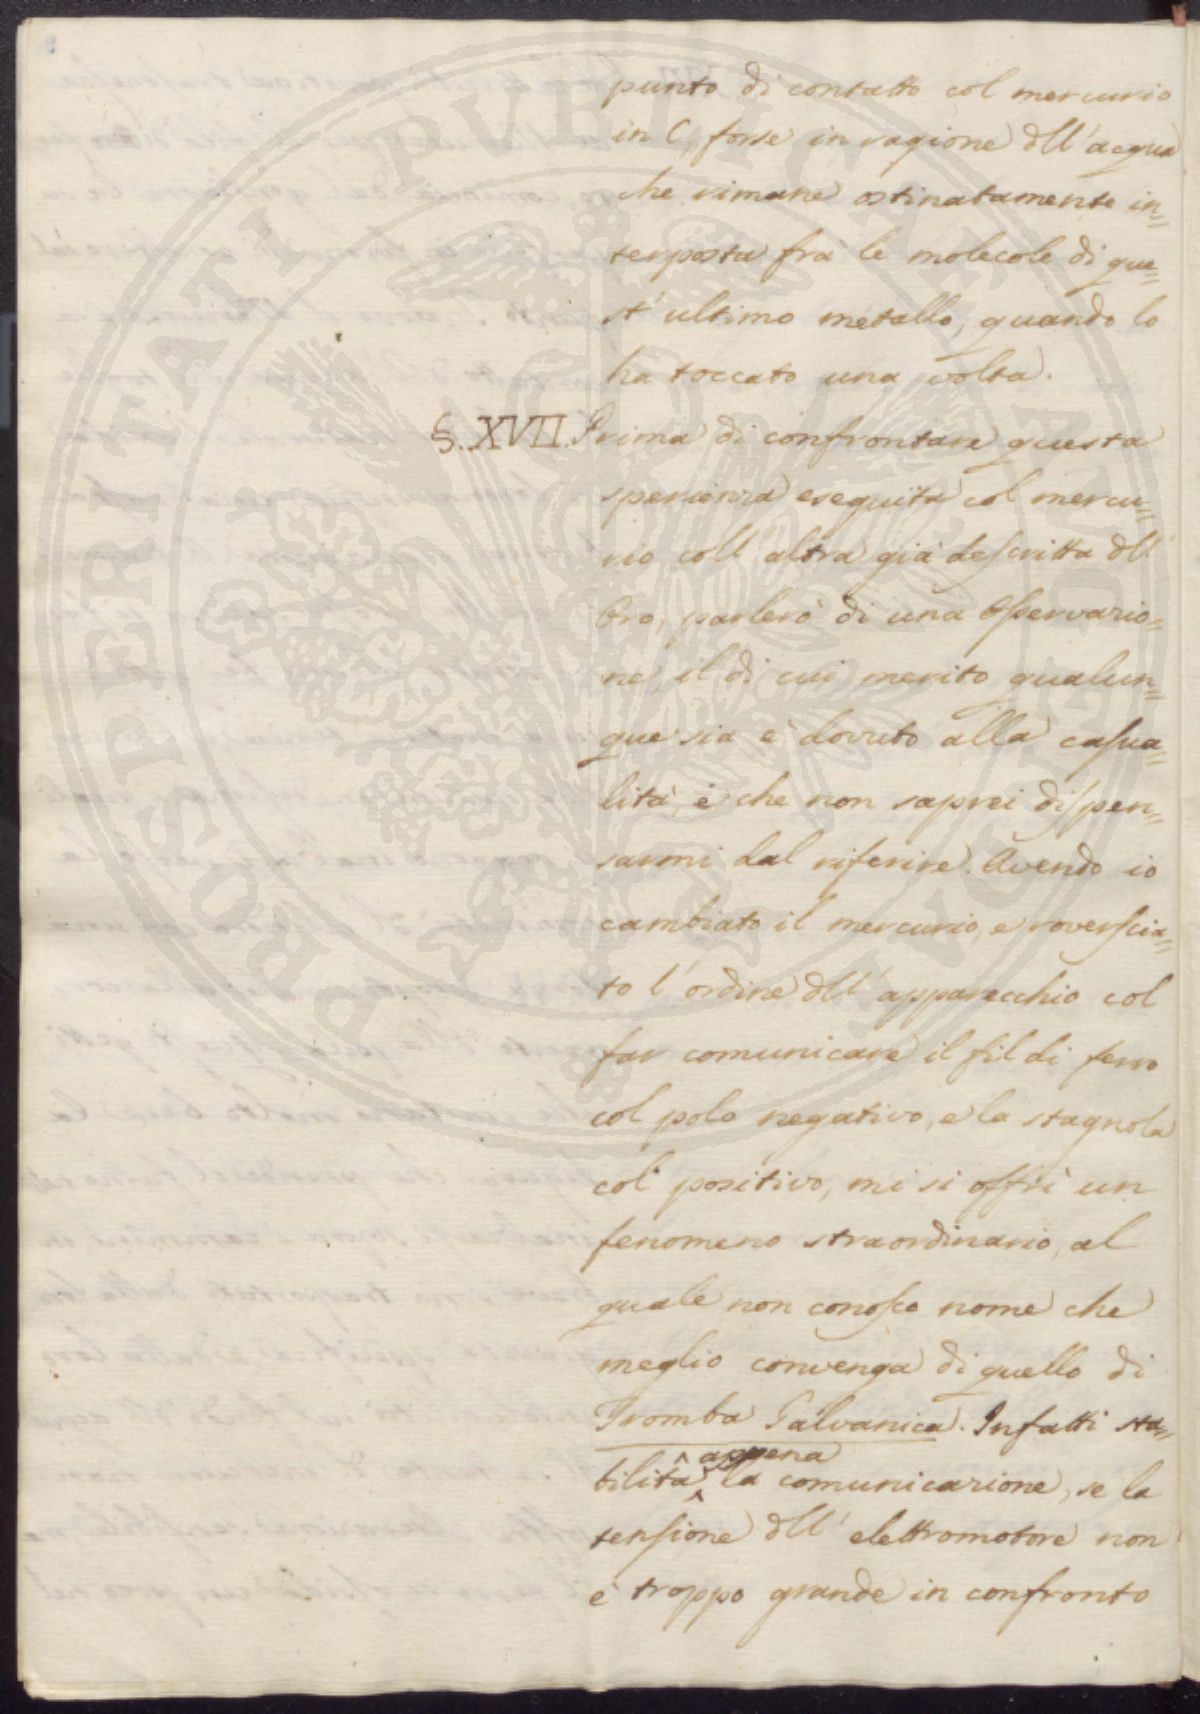 punto di contatto col mercurio
in C, forse in ragione dell'acqua
che rimane ostinatamente in=
terposta fra le molecole di que=
st'ultimo metallo, quando lo
ha toccato una volta.
§. XVII. Prima di confrontare questa
sperienza eseguita col mercu=
rio coll'altra già descritta dll'
Oro, parlerò di una Osservazio=
ne, il di cui merito qualun=
que sia è dovuto alla casua=
lità, e che non saprei dispen=
sarmi dal riferire. Avendo io
cambiato il mercurio, e roverscia=
to l'ordine dll'apparecchio col
far comunicare il fil di ferro
col polo negativo, e la stagnola
col positivo, mi si offrì un
fenomeno straordinario, al
quale non conosco nome che
meglio convenga di quello di
Tromba Galvanica. Infatti sta=
appena
bilita la comunicazione, se la
tensione dll'elettromotore non
è troppo grande in confronto
PROSPERITATI PUBLICAE